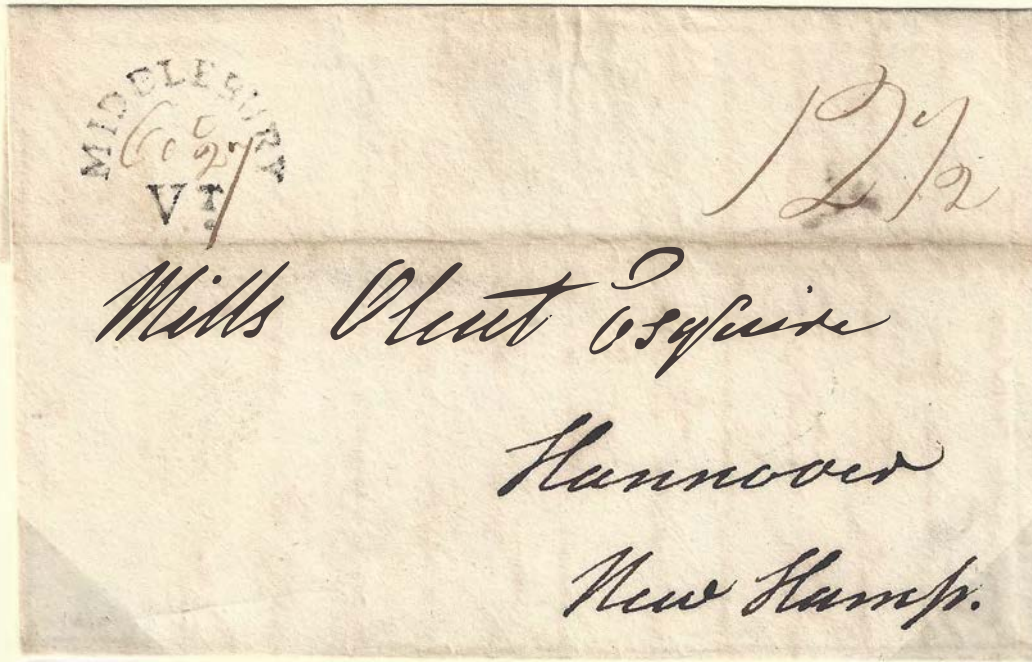 MIDDLEBURY
27
VT.
12 1/2
Mills Olcut Esquire
Hannover
New Hamp.